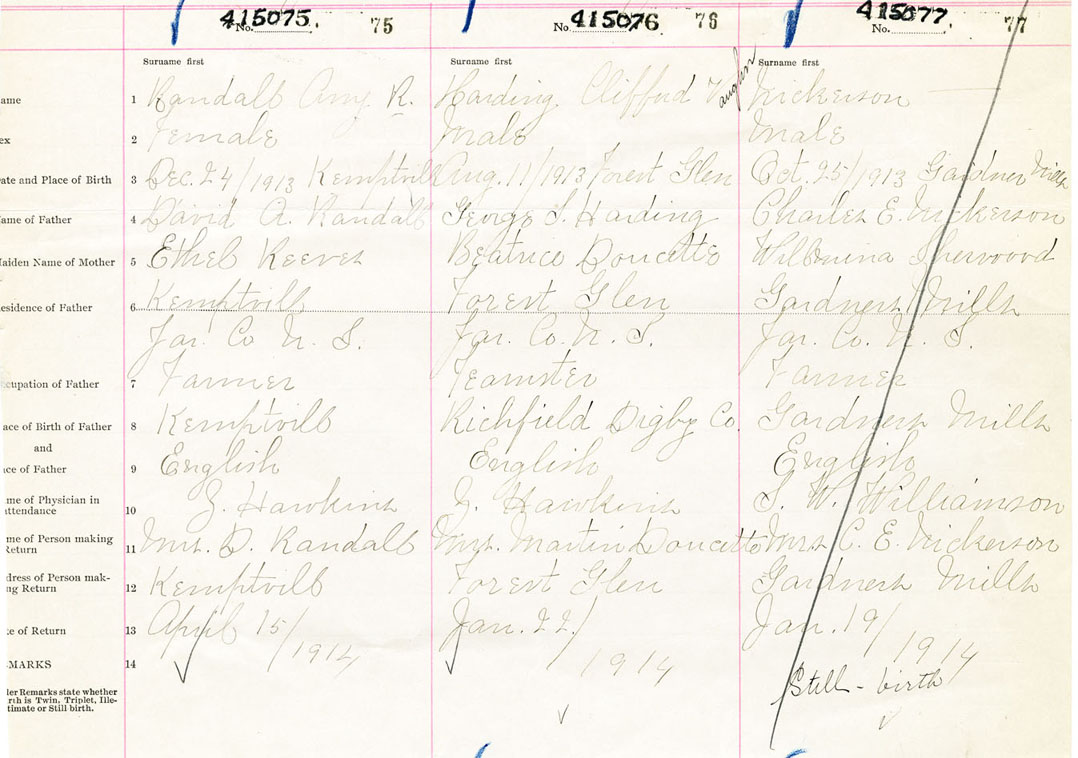 415075. 415076 415077.
No. 75 No 76 No. 77
Surname first Surname first Surname first
ame 1 Randall Amy R. Harding Clifford Vaughn Nickerson
ex 2 Female Male Male
ate and Place of Birth 3 Dec. 24/1913 Kemptvill Aug. 11/1913 Forest Glen Oct. 25/1913 Gardner Mills
ame of Father 4 David A. Randall George S. Harding Charles E. Nickerson
aiden Name of Mother 5 Ethel Reeves Beatrice Doucette Wilbmina Sherwood
esidence of Father 6 Kemptvill Forest Glen Gardners Mills
Yar. Co N. S. Yar. Co. N. S. Yar. Co. N. S.
ccupation of Father 7 Farmer Teamster Farmer
ace of Birth of Father 8 Kemptvill Richfield Digby Co. Gardners Mills
and
ace of Father 9 English English English
me of Physician in
attendance 10 J. Hawkins J. Hawkins S. W. Williamson
me of Person making
Return 11 Mrs. D. Randall Mrs. Martin Doucette Mrs C. E. Nickerson
dress of Person mak-
ng Return 12 Kemptvill Forest Glen Gardners Mills
te of Return 13 April 15/ Jan. 22/ Jan. 19/
1914 1914 1914
MARKS 14
Still - birth
der Remarks state whether
rth is Twin, Triplet, Ille-
timate or Still birth.